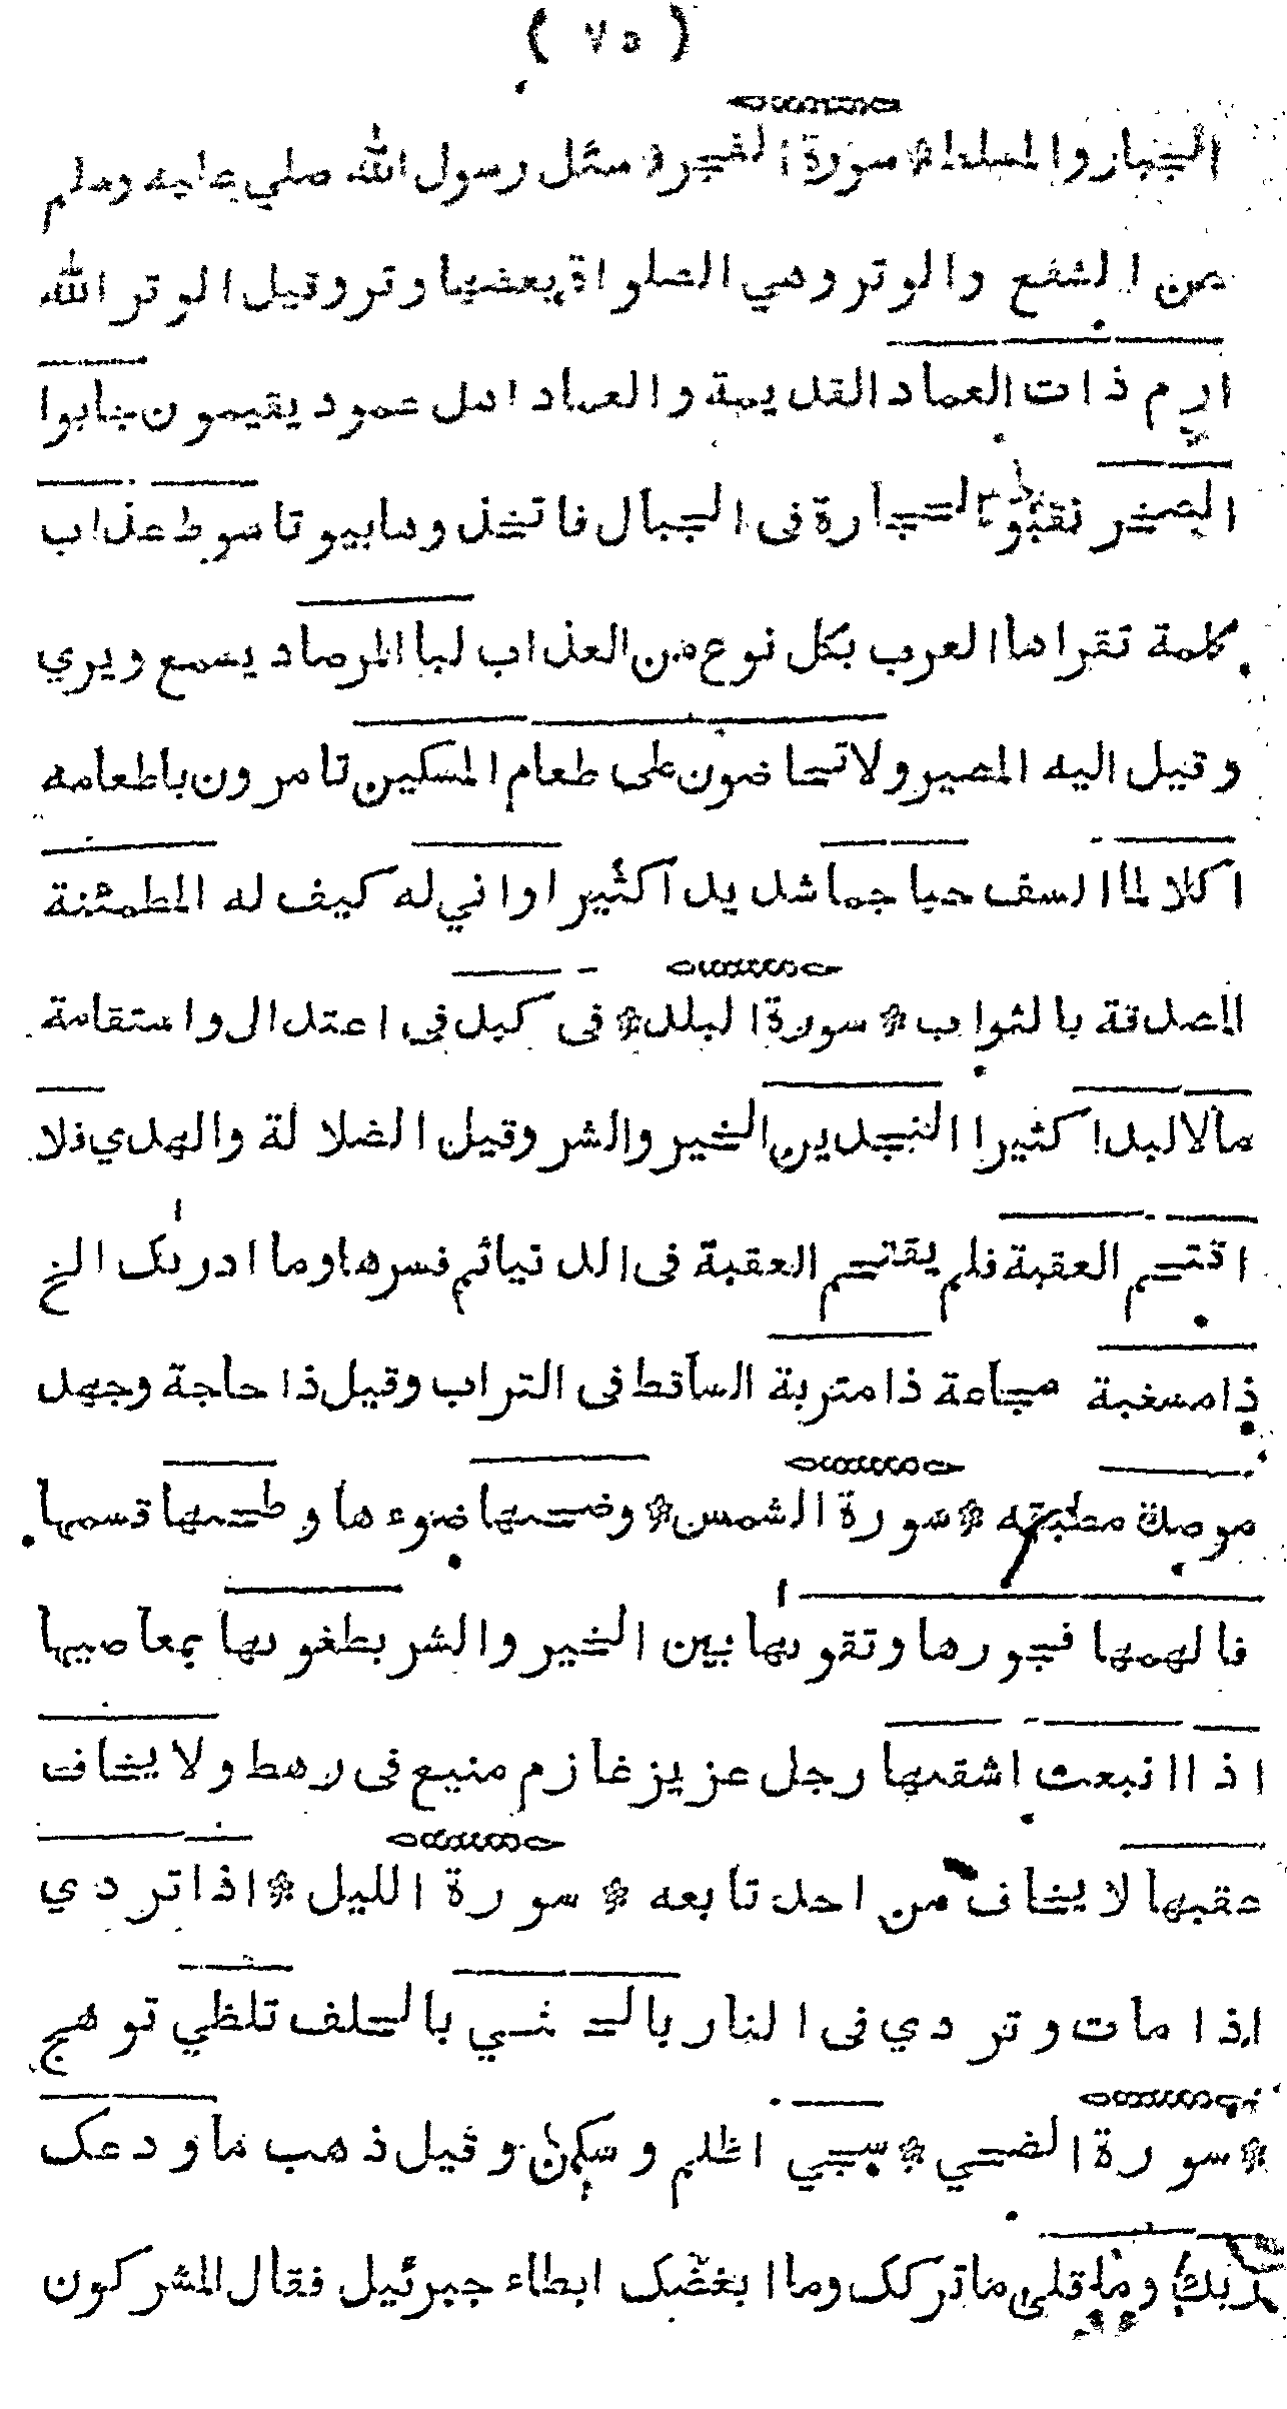 ( ٧٥ )
الجبار والمسلط * سورة الفجر * سئل رسول الله صلي عليه وسلم
عن الشفع والوتر وهي الصلواة بعضها وتر وقيل الوتر الله
ارم ذات العماد القديمة والعماد اهل عمود يقيمون جابوا
الصخر نقبوا الحجارة فى الجبال فاتخذوها بيوتا سوط عذاب
كلمة تقراها العرب بكل نوع من العذاب لبا المرصاد يسمع ويري
وقيل اليه المصير ولا تحاضون على طعام المسكين تامرون باطعامه
اكلا لما السف حبا جما شديدا كثيرا واني له كيف له المطمئنة
المصدقة بالثواب * سورة البلد * فى كبد فى اعتدال واستقامة
مالا لبدا كثيرا النجدين الخير والشر وقيل الضلالة والهدي فلا
اقتحم العقبة فلم يقتحم العقبة فى الدنياثم فسرها وما ادربك الخ
ذا مسغبة مجاعة ذا متربة الساقط فى التراب وقيل ذا حاجة وجهد
موصدة مطبقه * سورة الشمس * وضحىها ضوءها وطحىها قسمها
فالهمها فجورها وتقوىها بين الخير والشر بطغوىها بمعاصيها
اذ اانبعث اشقىها رجل عزيز غازم منيع فى رهط ولا يخاف
عقبها لا يخاف من احد تابعه * سورة الليل * اذا تردي
اذا مات وتردي فى النار بالحسني بالخلف تلظي توهج
* سورة الضحي * سجي اظلم وسكن وقيل ذهب ما ودعك
ربك وما قلى ماتركك وما ابغضك ابطاء جبرئيل فقال المشركون